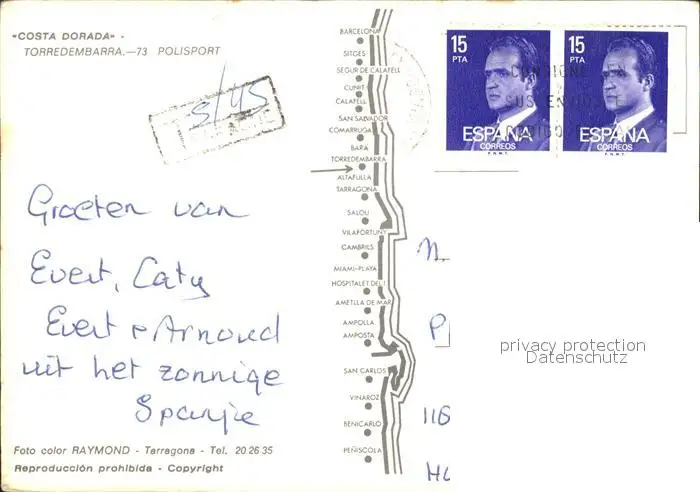 «COSTA DORADA» -
TORREDEMBARRA.—73 POLISPORT
5/45
Groeten van
Evert, Caty
Evert + Arnoud
uit het zonnige
Spanje
Foto color RAYMOND - Tarragona - Tel. 20 26 35
Reproducción prohibida - Copyright
BARCELONA
SITGES
SEGUR DE CALAFELL
CUNIT
CALAFELL
SAN SALVADOR
COMARRUGA
BARÁ
TORREDEMBARRA
ALTAFULLA
TARRAGONA
SALOU
VILAFORTUNY
CAMBRILS
MIAMI-PLAYA
HOSPITALET DEL I.
AMETLLA DE MAR
AMPOLLA
AMPOSTA
SAN CARLOS
VINAROZ
BENICARLO
PEÑISCOLA
15 PTA
ESPAÑA
CORREOS
F.N.M.T.
15 PTA
ESPAÑA
CORREOS
F.N.M.T.
P
116
privacy protection
Datenschutz